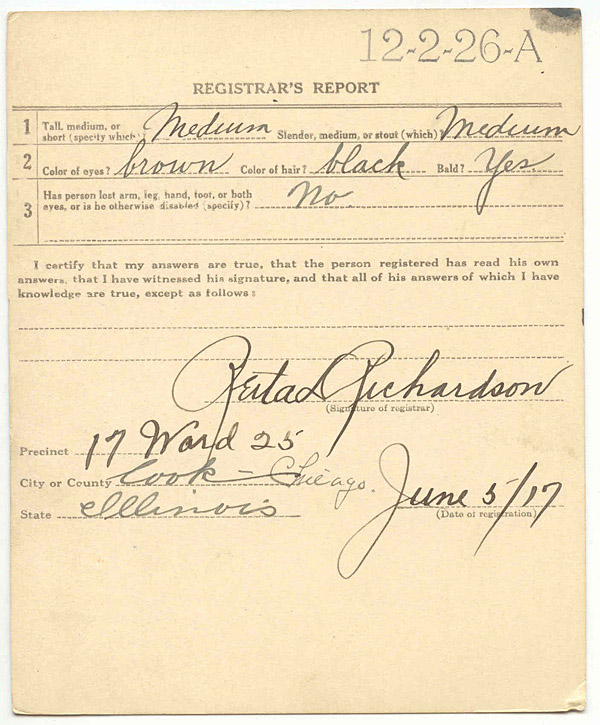 12-2-26-A
REGISTRAR'S REPORT
1 Tall, medium, or short (specify which)? Medium Slender, medium, or stout (which)? Medium
2 Color of eyes? brown Color of hair? black Bald? Yes
3 Has person lost arm, leg, hand, foot, or both eyes, or is he otherwise disabled (specify)? No
I certify that my answers are true, that the person registered has read his own
answers, that I have witnessed his signature, and that all of his answers of which I have
knowledge are true, except as follows:
Richardson
(Signature of registrar)
Precinct 17 Ward 25
City or County Cook - Chicago.
State Illinois
June 5/17
(Date of registration)